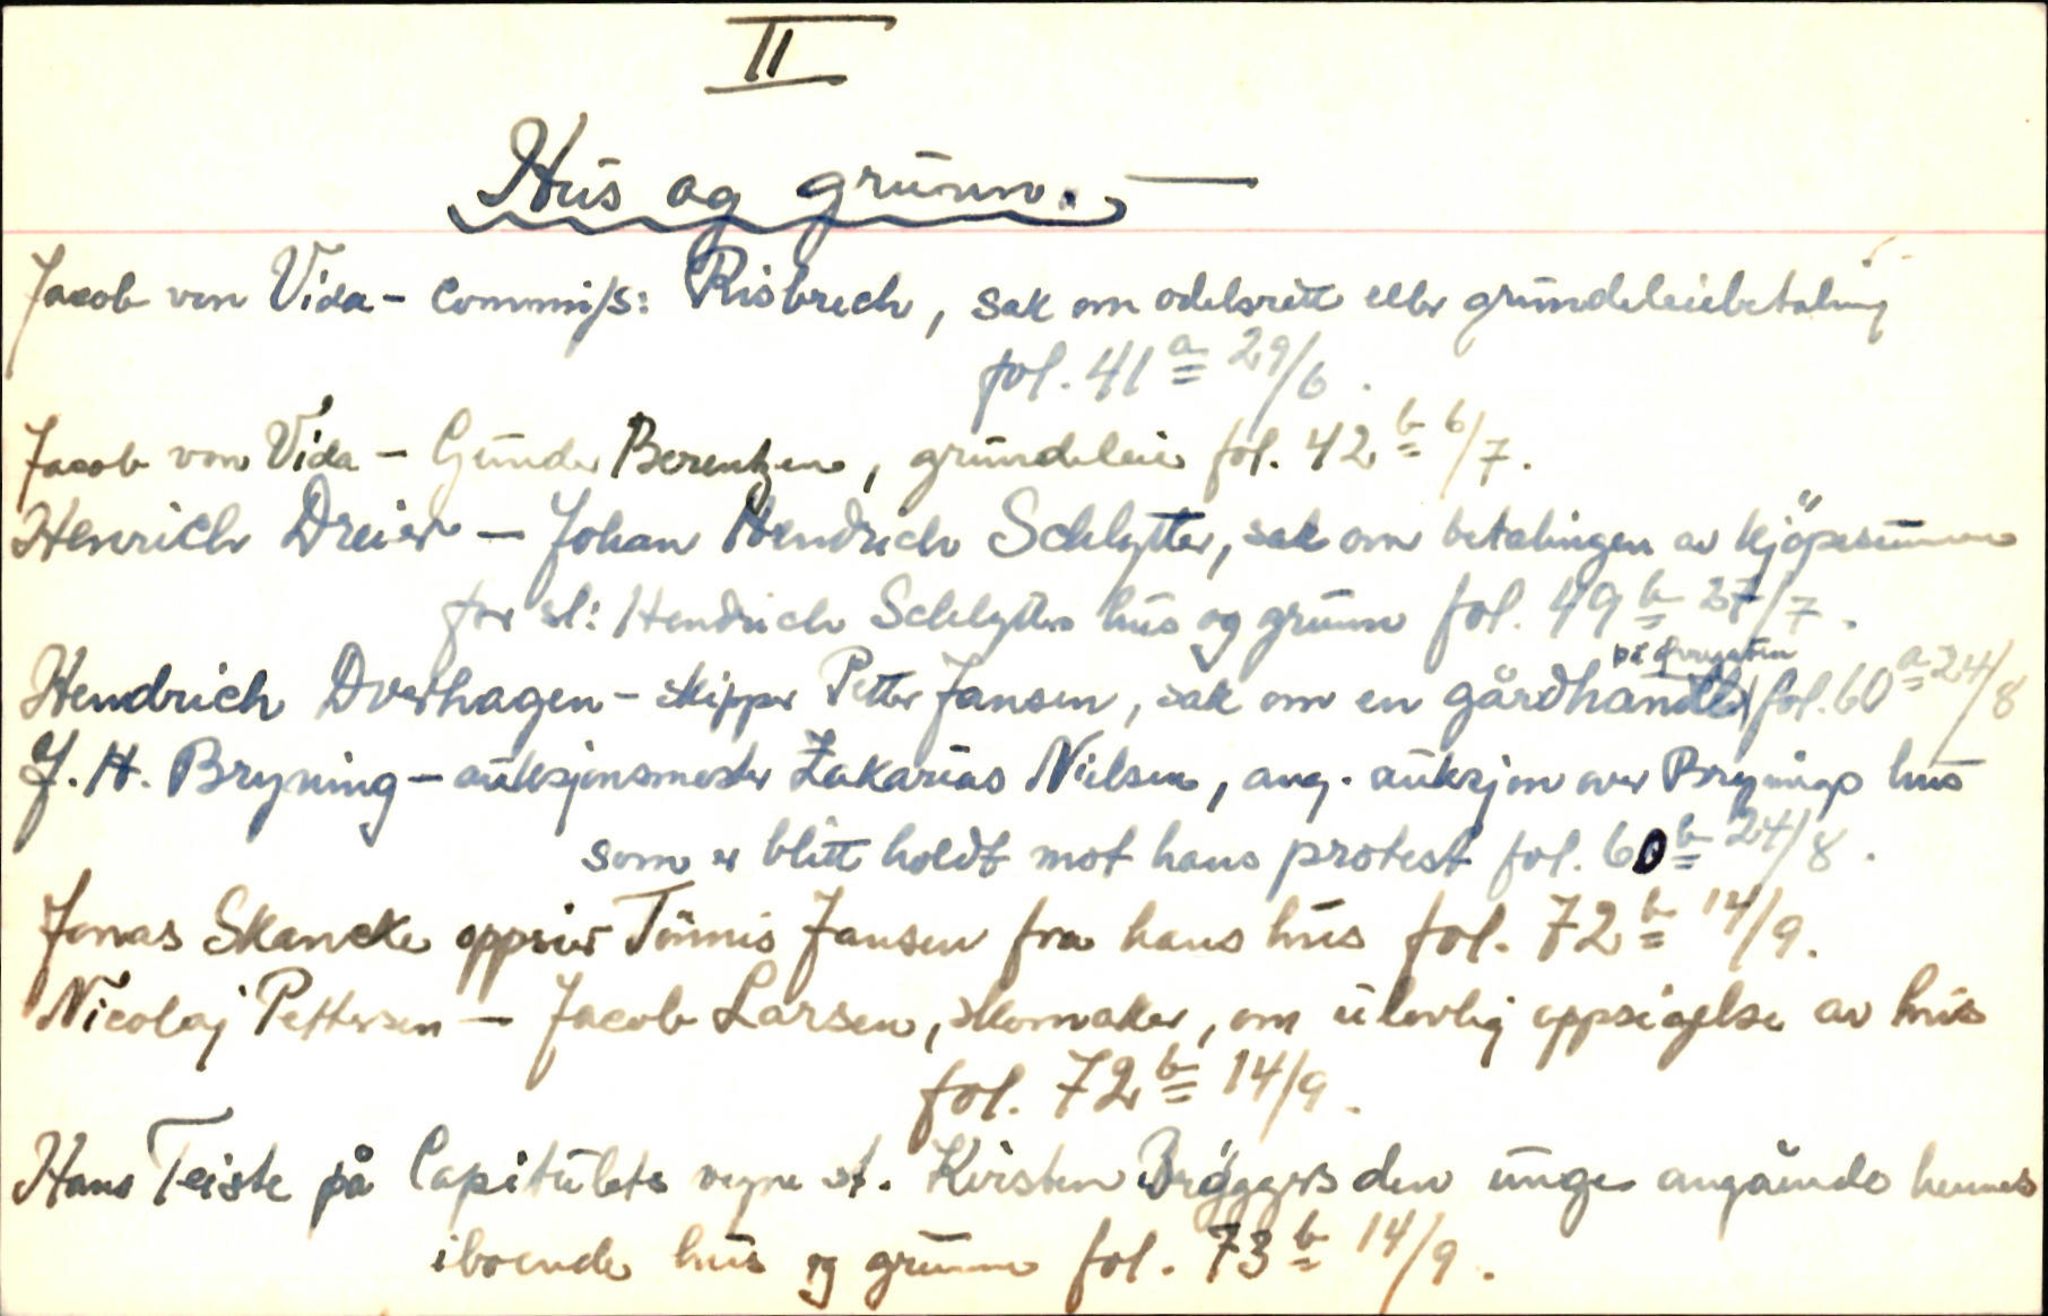 II
Hus og grunn. —
Jacob von Vida - Commiss: Risbrich, sak om odelsrett eller grundeleiebetaling
fol. 41 a 29/6.
Jacob von Vida - Gunder Berentzen, grundeleie fol. 42 b 6/7.
Henrich Dreier - Johan Hendrich Schlytter, sak om betalingen av kjöpesumme
for sl: Hendrich Schlytters hus og grunn fol. 49 b 27/7.
på
Hendrich Dverhagen - skipper Petter Jansen, sak om en gårdhandel fol. 60 a 24/8
J. H. Bryning - auksjonsmester Zakarias Nielsen, ang. auksjon over Brynings hus
som er blitt holdt mot hans protest fol. 60 b 24/8.
Jonas Skancke oppsier Tönnis Jansen fra hans hus fol. 72 b 14/9.
Nicolaj Pettersen - Jacob Larsen, skomaker, om ulovlig oppsigelse av hus
fol. 72 b 14/9.
Hans Teiste på Capitulets vegne st. Kirsten Bröggers den unge angående hennes
iboende hus og grunn fol. 73 b 14/9.